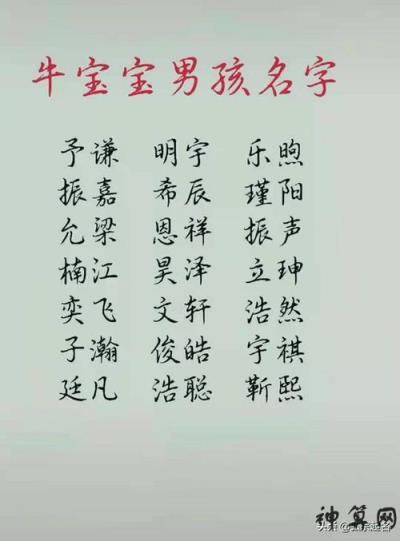 牛宝宝男孩名字
予谦 明宇 乐煦
振嘉 希辰 瑾阳
允梁 恩祥 振声
楠江 昊泽 立珅
奕飞 文轩 浩然
子瀚 俊皓 宇祺
廷凡 浩聪 靳熙
神算网